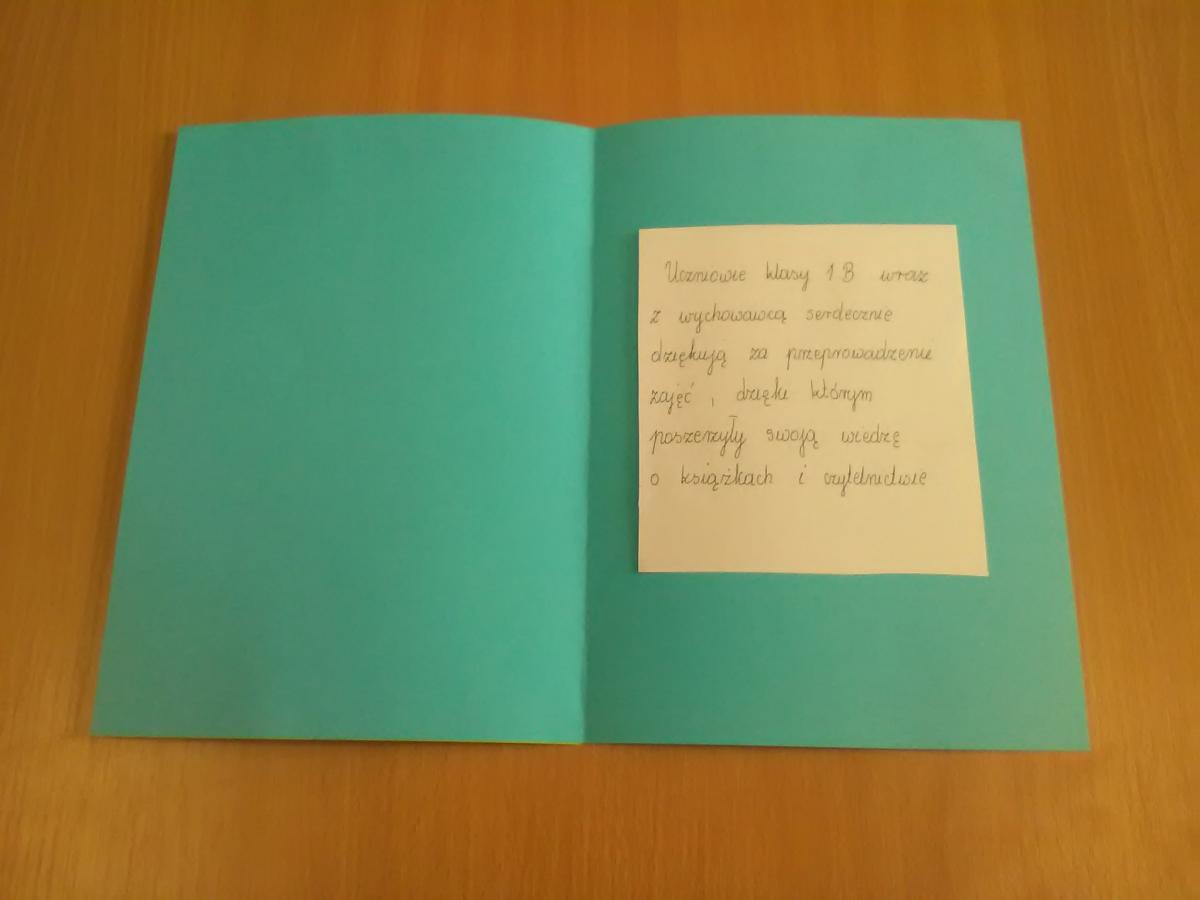 Uczniowie klasy 1 B wraz
z wychowawcą serdecznie
dziękują za przeprowadzenie
zajęć, dzięki którym
poszerzyły swoją wiedzę
o książkach i czytelnictwie